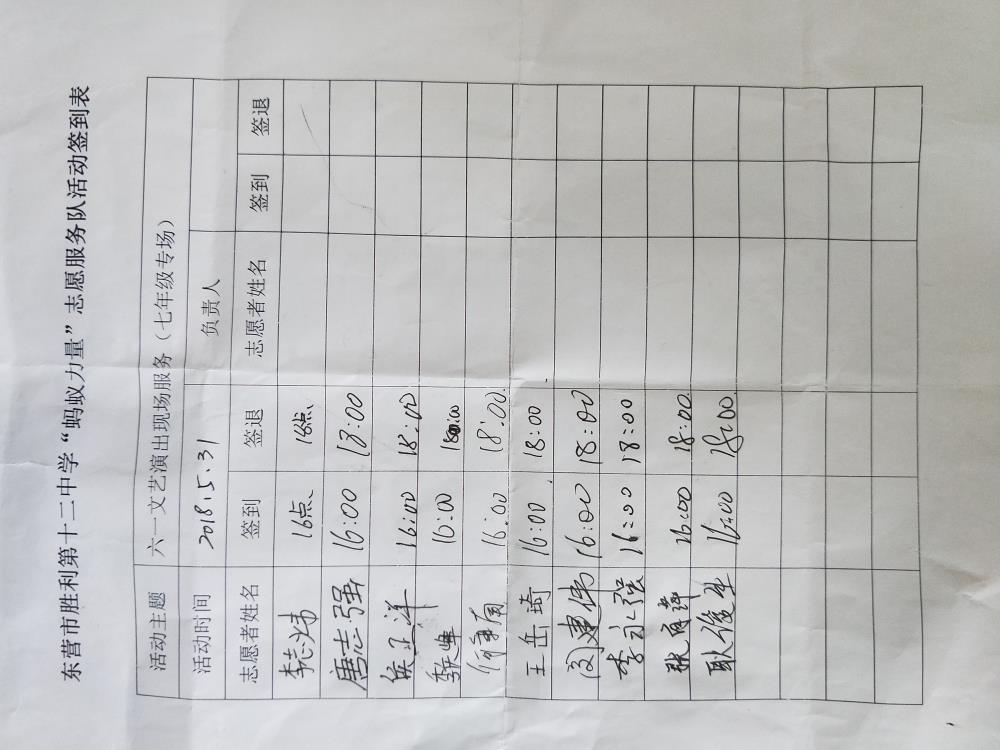 东营市胜利第十二中学“蚂蚁力量”志愿服务队活动签到表
活动主题 六一文艺演出现场服务（七年级专场）
活动时间 2018.5.31 负责人
志愿者姓名 签到 签退 志愿者姓名 签到 签退
李志炜 16点 18点
唐志强 16:00 18:00
侯正洋 16:00 18:00
16:00 18:00
16:00 18:00
王岳琦 16:00 18:00
闵建伟 16:00 18:00
李永强 16:00 18:00
16:00 18:00
耿俊生 16:00 18:00